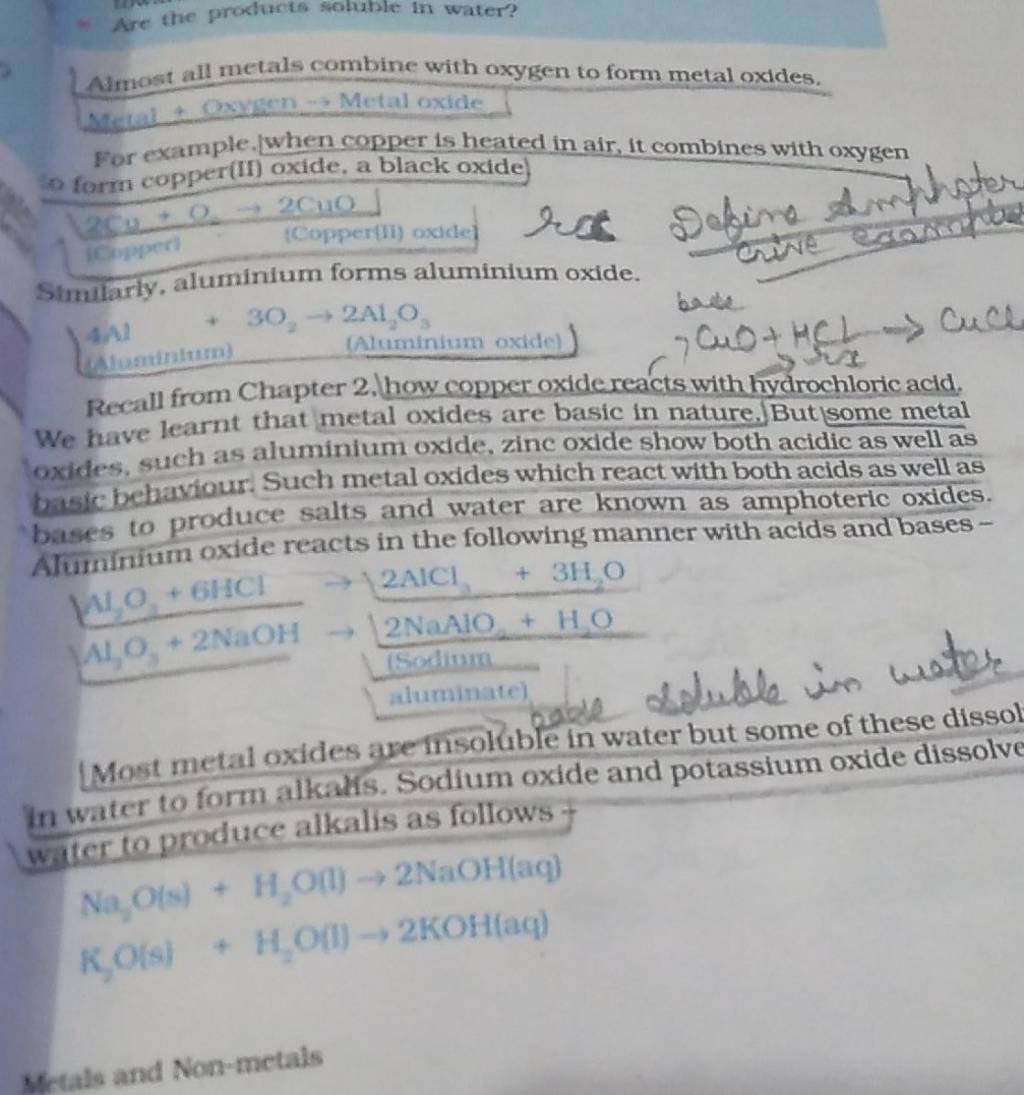 Are the products soluble in water?
Almost all metals combine with oxygen to form metal oxides.
Metal + Oxygen → Metal oxide
For example, when copper is heated in air, it combines with oxygen
to form copper(II) oxide, a black oxide
2Cu + O₂ → 2CuO
(Copper) (Copper(II) oxide)
Define Amphoter
Give
Similarly, aluminium forms aluminium oxide.
4Al + 3O₂ → 2Al₂O₃
(Aluminium) (Aluminium oxide)
base
CuO + HCl → CuCl
Recall from Chapter 2, how copper oxide reacts with hydrochloric acid.
We have learnt that metal oxides are basic in nature. But some metal
oxides, such as aluminium oxide, zinc oxide show both acidic as well as
basic behaviour. Such metal oxides which react with both acids as well as
bases to produce salts and water are known as amphoteric oxides.
Aluminium oxide reacts in the following manner with acids and bases –
Al₂O₃ + 6HCl → 2AlCl₃ + 3H₂O
Al₂O₃ + 2NaOH → 2NaAlO₂ + H₂O
(Sodium
aluminate)
base soluble in water
Most metal oxides are insoluble in water but some of these dissol
in water to form alkalis. Sodium oxide and potassium oxide dissolve
water to produce alkalis as follows –
Na₂O(s) + H₂O(l) → 2NaOH(aq)
K₂O(s) + H₂O(l) → 2KOH(aq)
Metals and Non-metals